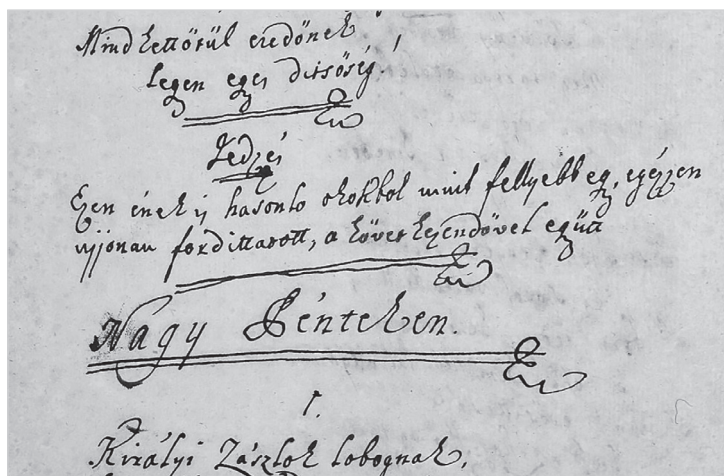 Mind kettőtül eredőnek
legen eges ditsőség!
Jedzés
Ezen ének is hasonlo okokbol mint fellyebb eg, egézzen
ujjonan fordittatott, a következendővel együtt
Nagy Pénteken.
1.
Királyi Zászlok lobognak,